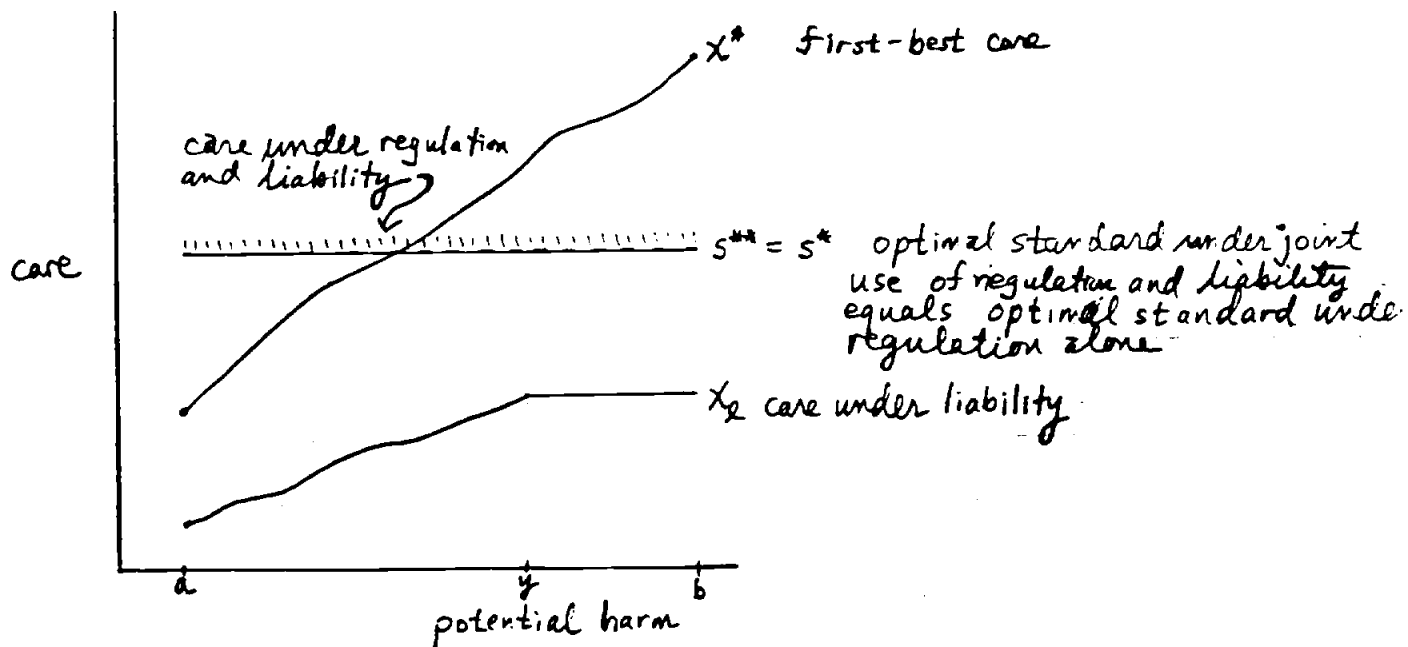 x* first-best care
care under regulation
and liability
s** = s* optimal standard under joint
use of regulation and liability
equals optimal standard unde
regulation alone
care
xℓ care under liability
a y b
potential harm